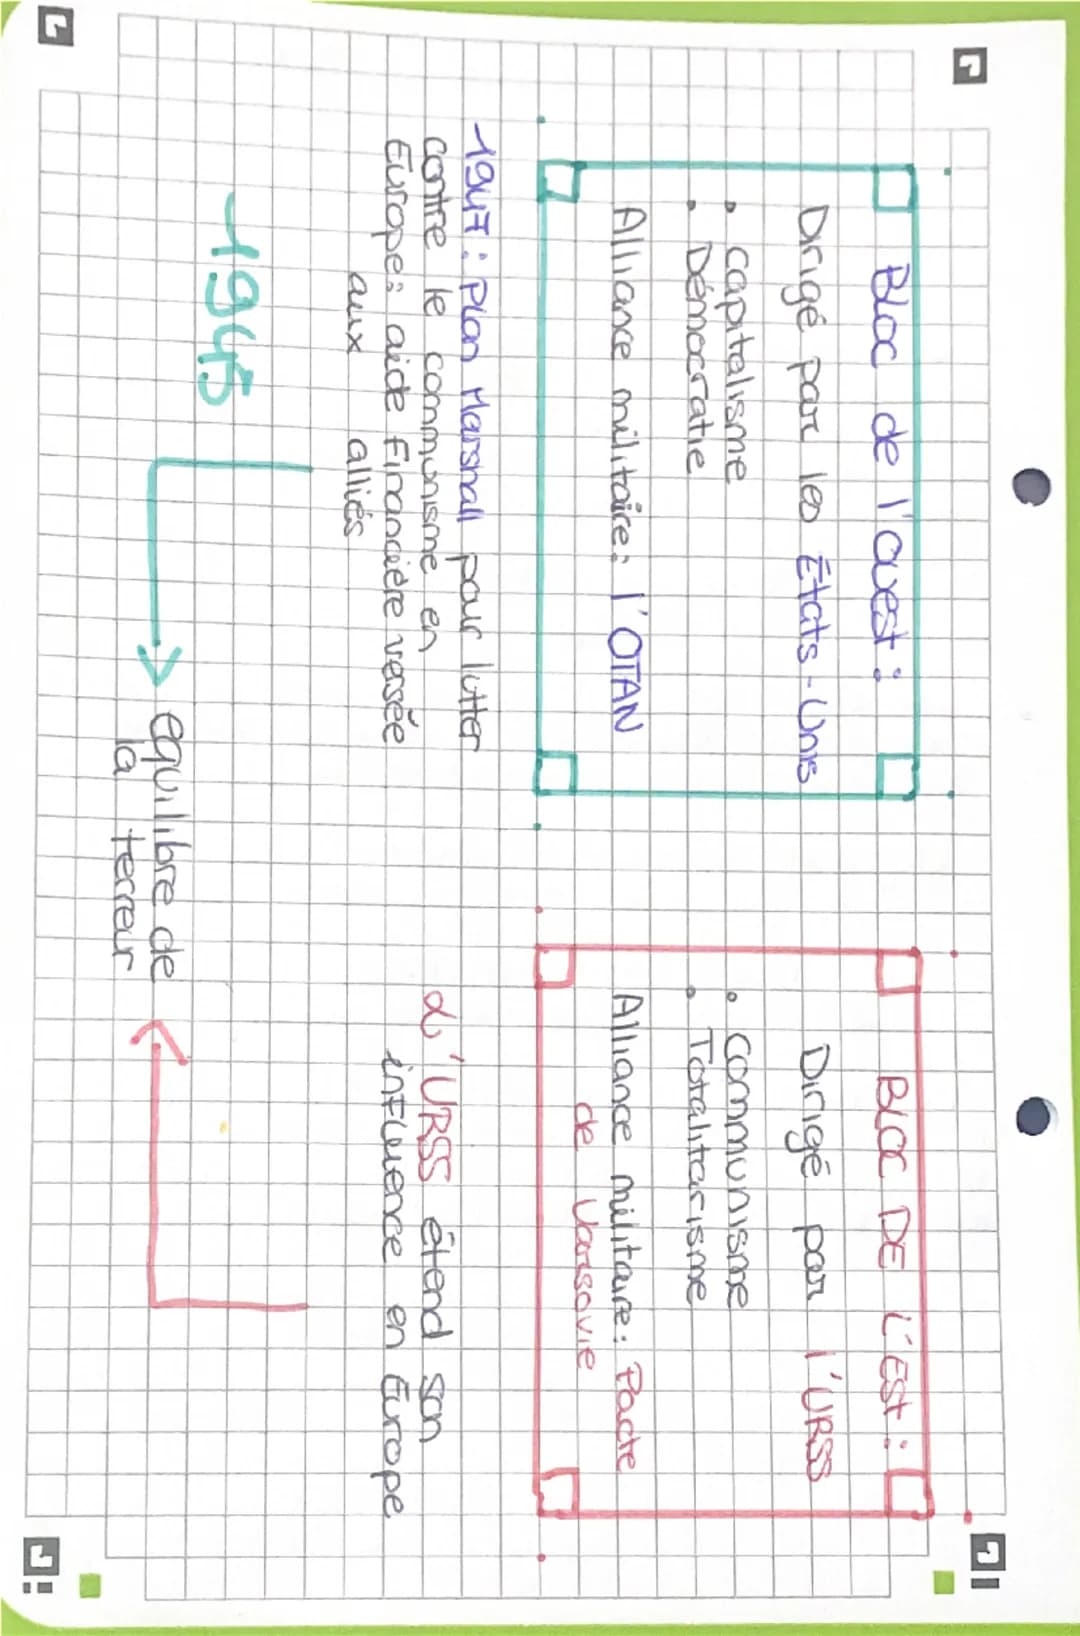 Bloc de l'ouest :
Dirigé par les États-Unis
• Capitalisme
• Démocratie
Alliance militaire : l'OTAN
1947 : Plan Marshall pour lutter
contre le communisme en
Europe : aide financière versée
aux alliés
BLOC DE L'EST :
Dirigé par l'URSS
• Communisme
• Totalitarisme
Alliance militaire : Pacte
de Varsovie
L'URSS étend son
influence en Europe
1945
équilibre de
la terreur